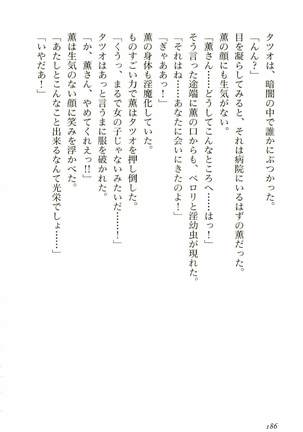 タツオは、暗闇の中で誰かにぶつかった。
「んん？」
目を凝らしてみると、それは病院にいるはずの薫だった。
薫の顔にも生気がない。
「薫さん……どうしてこんなところへ──はっ！」
そう言った途端に薫の口からも、ペロリと淫幼虫が現れた。
「それはね……あなたに会いにきたのよ！」
「ぎゃああっ！」
薫の身体も淫魔化していた。
ものすごい力で薫はタツオを押し倒した。
「くうっ、まるで女の子じゃないみたいだ……！」
タツオはあっと言うまに服を破かれた。
「か、薫さん、やめてくれえっ!!」
薫は生気のない顔に笑みを浮かべた。
「あたしとこんなこと出来るなんて光栄でしょ……」
「いやだあ！」
186